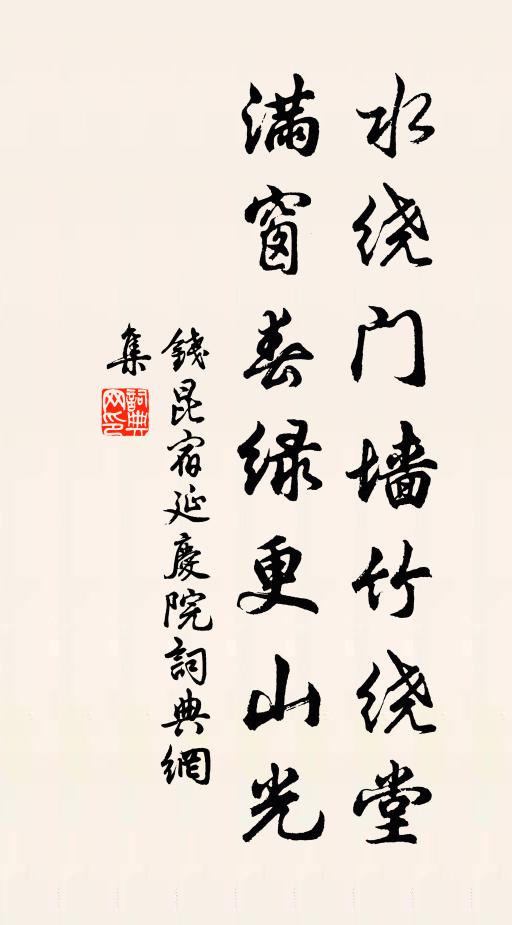 水绕门墙竹绕堂
满窗春绿更山光
錢昆宿延慶院詞典網
集
詞典
网印